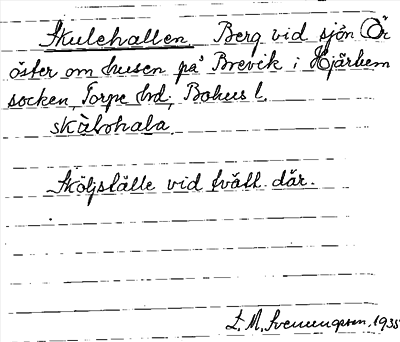 Skulehallen Berg vid sjön Ör
öster om husen på Brevik i Hjärtum
socken, Torpe hd; Bohus l.
Sköljställe vid tvätt där.
L. M. Svenungsson, 1935